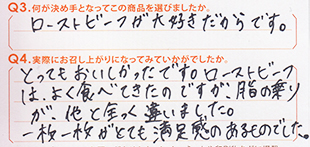 Q3.何が決め手となってこの商品を選びましたか。
ローストビーフが大好きだからです。
Q4.実際にお召し上がりになってみていかがでしたか。
とってもおいしかったです。ローストビーフ
は、よく食べてきたのですが、脂の乗り
が、他と全く違いました。
一枚一枚がとても満足感のあるものでした。